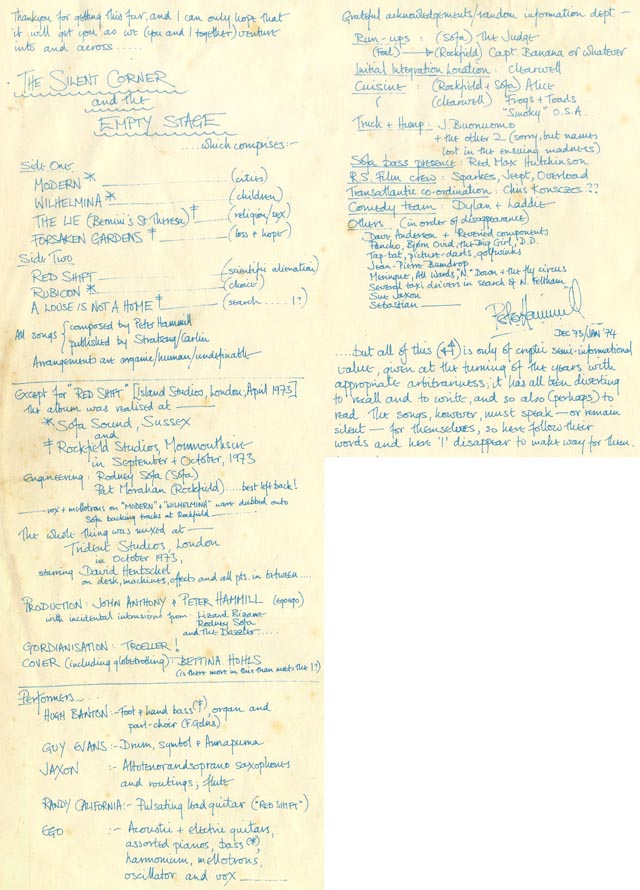 Thankyou for getting this far, and I can only hope that
it will get you as we (you and I together) venture
into and across.....
THE SILENT CORNER
and the
EMPTY STAGE
....which comprises:-
Side One.
MODERN * (cities)
WILHELMINA * (children)
THE LIE (Bernini's St. Theresa) ‡ (religion/sex)
FORSAKEN GARDENS ‡ (loss + hope)
Side Two
RED SHIFT (scientific alienation)
RUBICON * (choice)
A LOUSE IS NOT A HOME ‡ (search ....!?)
All songs { composed by Peter Hammill
published by Stratsong/Carlin
Arrangements are organic/human/undefinable
Except for "RED SHIFT" [Island Studios, London, April 1973]
the album was realised at
* Sofa Sound, Sussex
and
‡ Rockfield Studios, Monmouthshire
in September + October, 1973
Engineering: Rodney Sofa (Sofa)
Pat Moran (Rockfield) .....best left back!
vox + mellotrons on "MODERN" + "WILHELMINA" were dubbed onto
Sofa backing tracks at Rockfield
The whole thing was mixed at
Trident Studios, London
in October 1973,
starring David Hentschel
on desk, machines, effects and all pts. in between....
PRODUCTION: JOHN ANTHONY + PETER HAMMILL (EGOEGO)
with incidental intrusions from: Lizard Bizarre
Rodney Sofa
and The Dazzler.....
GORDIANISATION: TROELLER!
COVER (including globetrotting): BETTINA HOHLS
(is there more in this than meets the !?)
Performers....
HUGH BANTON :- Foot + hand bass (‡), organ and
part-choir (F.Gdns)
GUY EVANS :- Drum, symbol + Annapurna
JAXON :- Altotenorandsoprano saxophones
and routings; flute
RANDY CALIFORNIA:- Pulsating lead guitar ("RED SHIFT")
EGO :- Acoustic + electric guitars,
assorted pianos, bass (*),
harmonium, mellotrons,
oscillator and vox
Grateful acknowledgements/random information dept —
Run-ups: (Sofa) The Judge
(Fool) → (Rockfield) Capt. Banana or whatever
Initial Integration Location: Clearwell
Cuisine: (Rockfield + Sofa) Alice
(Clearwell) Frogs + Toads
"Smoky" O.S.A.
Truck + Hump: J. Buonuomo
+ the other 2 (sorry, but names
lost in the ensuing madness)
Sofa bass presence: Red Max Hutchinson
R.S. Film crew: Sparkes, Jeept, Overload
Transatlantic co-ordination: Chris ??
Comedy team: Dylan + Laddie
Others (in order of disappearance)
Dave Anderson + Revered components
Pancho, Bjorn Ovid, the Big Girl, D.D.
Tap-tat, picture-darts, golfwinks
Jean-Pierre Bumdrop
Meringue, All Wards, "N." Doran + the fly circus
Several taxi drivers in search of N. Feltham
Sue Jaxon
Sebastian
Peter Hammill
DEC 73/JAN '74
....but all of this is only of cryptic semi-informational
value, given at the turning of the years with
appropriate arbitrariness; it has all been diverting
to recall and to write, and so also (perhaps) to
read. The songs, however, must speak — or remain
silent — for themselves, so here follow their
words and here 'I' disappear to make way for them.